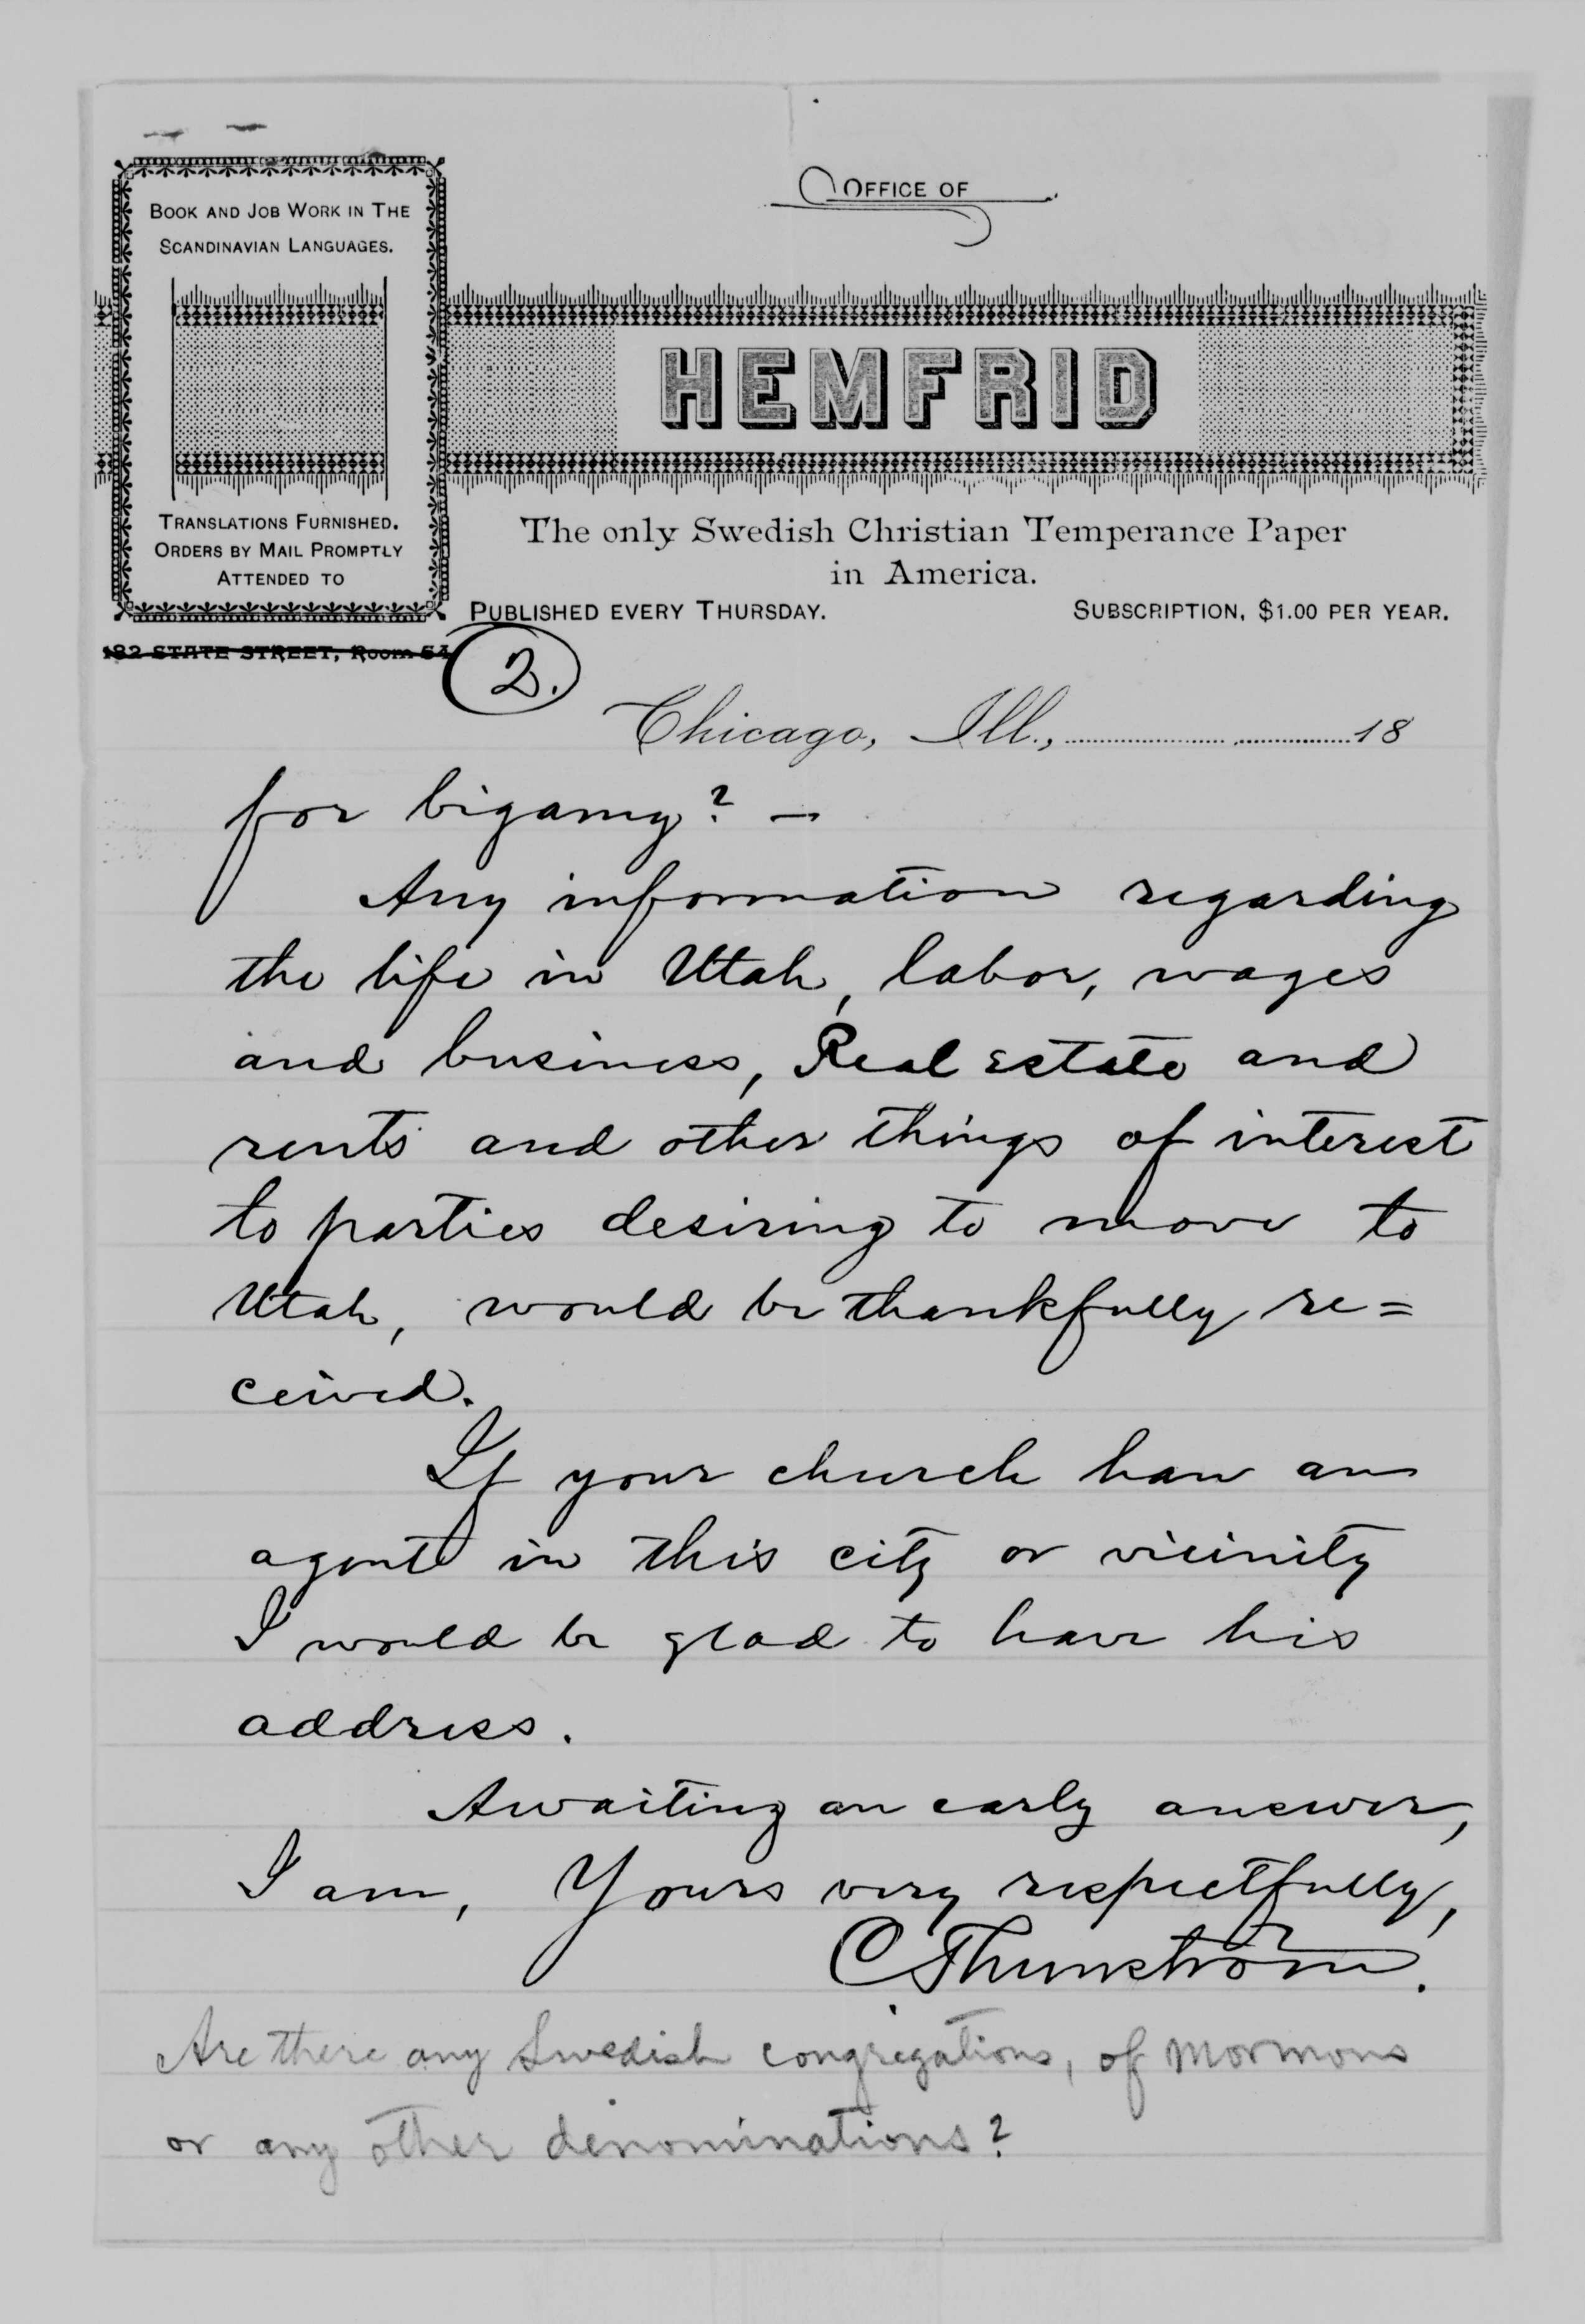 OFFICE OF
BOOK AND JOB WORK IN THE
SCANDINAVIAN LANGUAGES.
HEMFRID
TRANSLATIONS FURNISHED.
ORDERS BY MAIL PROMPTLY
ATTENDED TO
The only Swedish Christian Temperance Paper
in America.
PUBLISHED EVERY THURSDAY. SUBSCRIPTION, $1.00 PER YEAR.
182 STATE STREET, Room 54
2.
Chicago, Ill., 18
for bigamy? —
Any information regarding
the life in Utah, labor, wages
and business, Real Estate and
rents and other things of interest
to parties desiring to move to
Utah, would be thankfully re=
ceived.
If your church have an
agent in this city or vicinity
I would be glad to have his
address.
Awaiting an early answer,
I am, Yours very respectfully,
C Thunström.
Are there any Swedish congregations, of Mormons
or any other denominations?